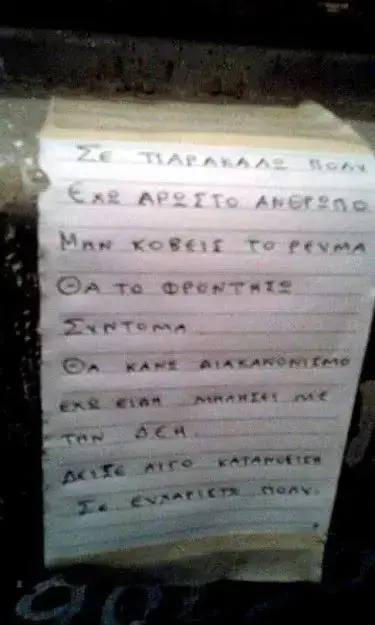 ΣΕ ΠΑΡΑΚΑΛΩ ΠΟΛΥ
ΕΧΩ ΑΡΩΣΤΟ ΑΝΘΡΩΠΟ
ΜΗΝ ΚΟΒΕΙΣ ΤΟ ΡΕΥΜΑ
ΘΑ ΤΟ ΦΡΟΝΤΗΣΩ
ΣΥΝΤΟΜΑ
ΘΑ ΚΑΝΩ ΔΙΑΚΑΝΟΝΙΣΜΟ
ΕΧΩ ΕΙΔΗ ΜΗΛΗΣΕΙ ΜΕ
ΤΗΝ ΔΕΗ.
ΔΕΙΞΕ ΛΙΓΟ ΚΑΤΑΝΟΕΙΣΗ
ΣΕ ΕΥΧΑΡΙΣΤΩ ΠΟΛΥ.